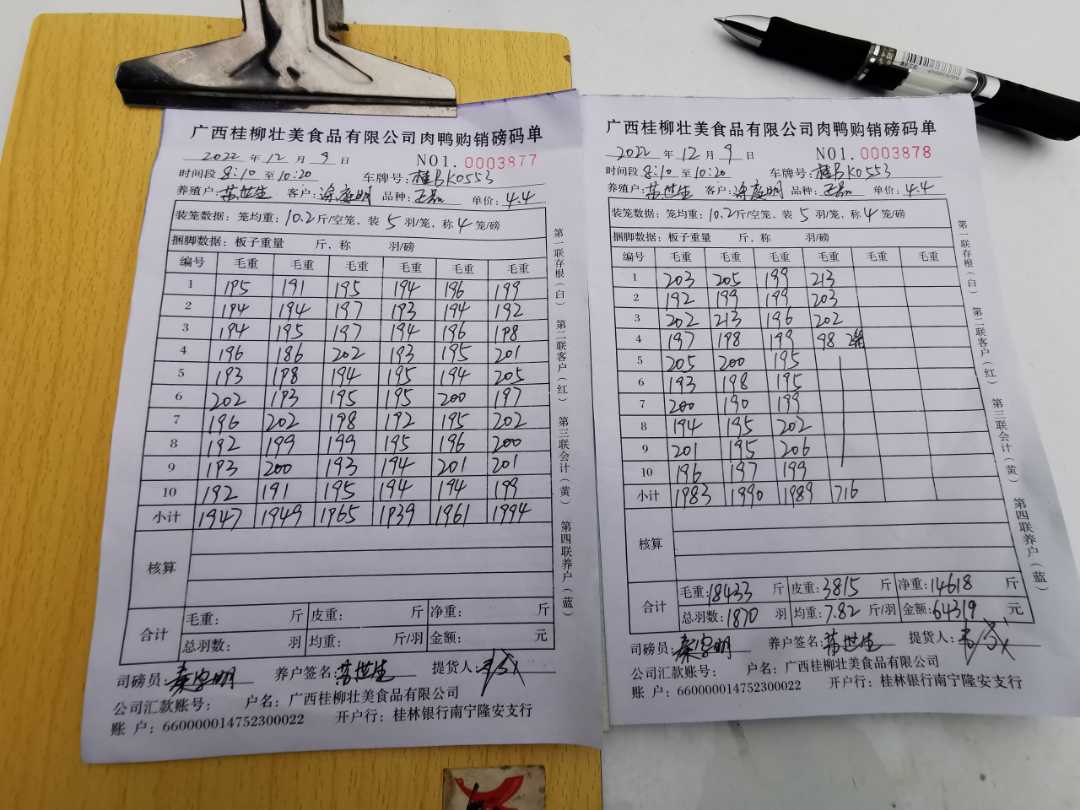 广西桂柳壮美食品有限公司肉鸭购销磅码单
2022 年 12 月 9 日 NO1. 0003877
时间段 8:10 至 10:20 车牌号: 桂BK0553
养殖户: 苏世生 客户: 品种: 单价: 4.4
装笼数据: 笼均重: 10.2 斤/空笼, 装 5 羽/笼, 称 4 笼/磅
捆脚数据: 板子重量 斤, 称 羽/磅
编号 毛重 毛重 毛重 毛重 毛重 毛重
1 195 191 195 194 196 199
2 194 194 197 193 194 192
3 194 195 197 194 196 198
4 196 186 202 193 195 201
5 193 198 194 195 194 205
6 202 193 195 195 200 197
7 196 202 198 192 195 202
8 192 199 199 195 196 200
9 193 200 193 194 201 201
10 192 191 195 194 194 199
小计 1947 1949 1965 1939 1961 1994
核算
合计 毛重: 斤 皮重: 斤 净重: 斤
总羽数: 羽 均重: 斤/羽 金额: 元
司磅员: 养户签名: 苏世生 提货人:
公司汇款账号: 户名: 广西桂柳壮美食品有限公司
账 户: 660000014752300022 开户行: 桂林银行南宁隆安支行
第一联存根(白) 第二联客户(红) 第三联会计(黄) 第四联养户(蓝)
广西桂柳壮美食品有限公司肉鸭购销磅码单
2022 年 12 月 9 日 NO1. 0003878
时间段 8:10 至 10:20 车牌号: 桂BK0553
养殖户: 苏世生 客户: 品种: 单价: 4.4
装笼数据: 笼均重: 10.2 斤/空笼, 装 5 羽/笼, 称 4 笼/磅
捆脚数据: 板子重量 斤, 称 羽/磅
编号 毛重 毛重 毛重 毛重 毛重 毛重
1 203 205 199 213
2 192 199 199 203
3 202 213 196 202
4 197 198 199 98 2笼
5 205 200 195
6 193 198 195
7 200 190 199
8 194 195 202
9 201 195 206
10 196 197 199
小计 1983 1990 1989 716
核算
合计 毛重: 18433 斤 皮重: 3815 斤 净重: 14618 斤
总羽数: 1870 羽 均重: 7.82 斤/羽 金额: 64319 元
司磅员: 养户签名: 苏世生 提货人:
公司汇款账号: 户名: 广西桂柳壮美食品有限公司
账 户: 660000014752300022 开户行: 桂林银行南宁隆安支行
第一联存根(白) 第二联客户(红) 第三联会计(黄) 第四联养户(蓝)